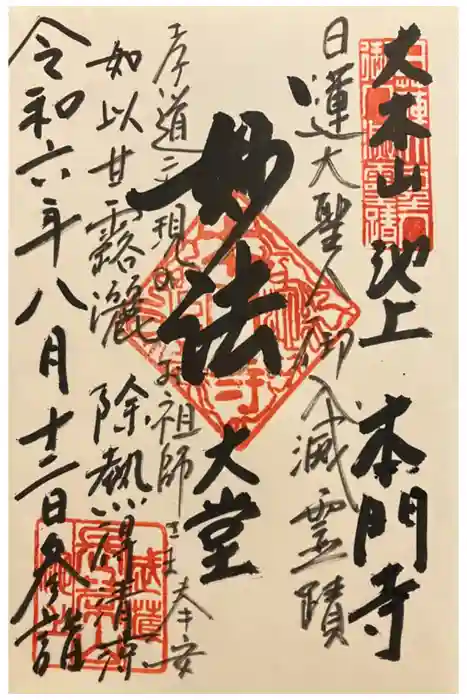 大本山 池上 本門寺
日蓮大聖人御入滅霊蹟
妙法 大堂
お祖師さま奉安
如以甘露灑 除熱得清涼
令和六年八月十二日参詣
日蓮大聖人
御入滅霊蹟